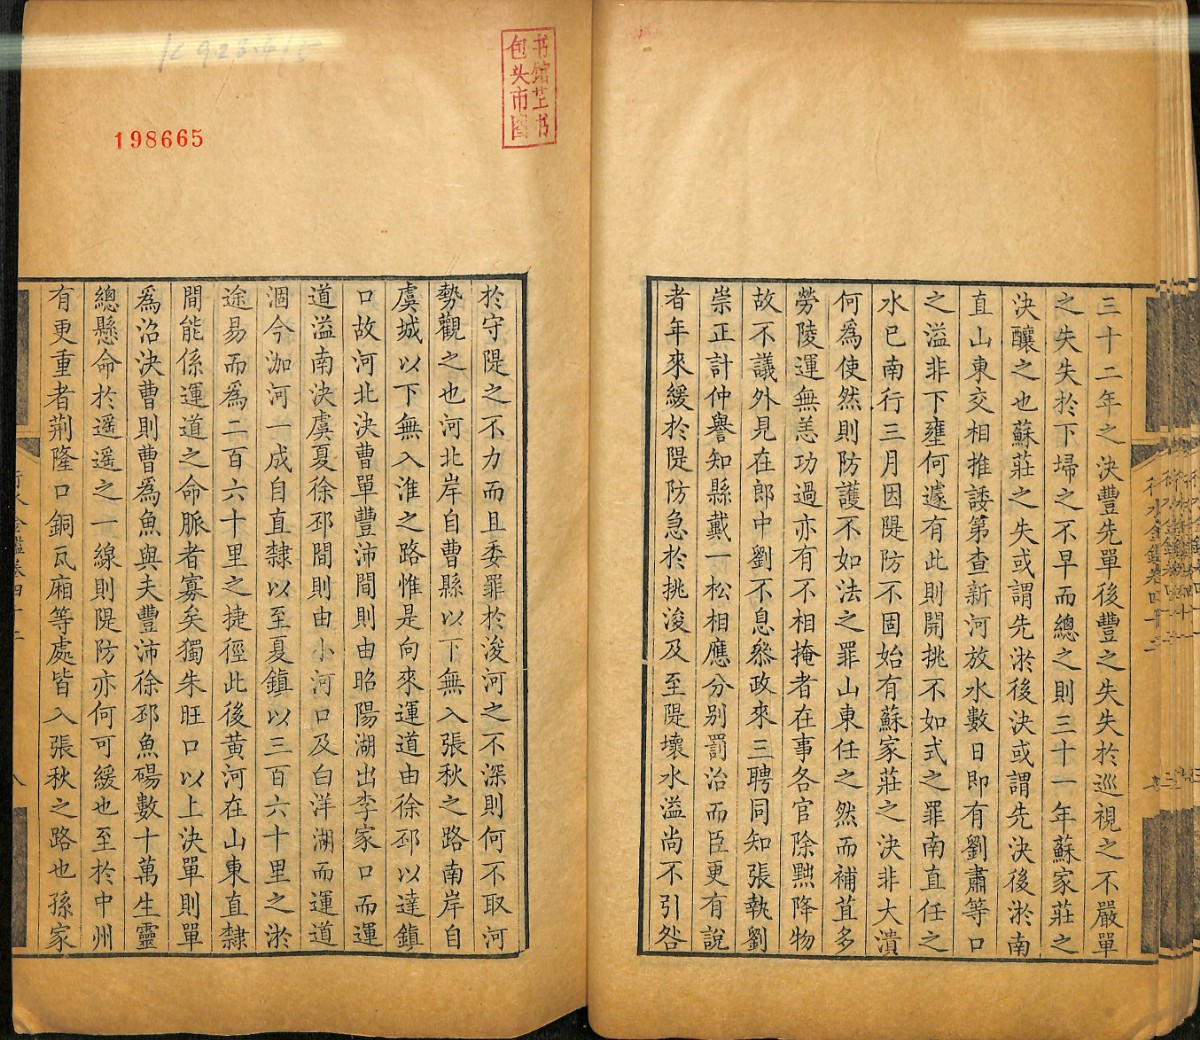 三十二年之決豐先單後豐之失失於巡視之不嚴單
之失失於下埽之不早而總之則三十一年蘇家莊之
決釀之也蘇莊之失或謂先淤後決或謂先決後淤南
直山東交相推諉第查新河放水數日即有劉肅等口
之溢非下壅何遽有此則開挑不如式之罪南直任之
水已南行三月因隄防不固始有蘇家莊之決非大潰
何為使然則防護不如法之罪山東任之然而補苴多
勞陵運無恙功過亦有不相掩者在事各官除黜降物
故不議外見在郎中劉不息叅政來三聘同知張執劉
崇正計仲譽知縣戴一松相應分別罰治而臣更有說
者年來緩於隄防急於挑浚及至隄壞水溢尚不引咎
於守隄之不力而且委罪於浚河之不深則何不取河
勢觀之也河北岸自曹縣以下無入張秋之路南岸自
虞城以下無入淮之路惟是向來運道由徐邳以達鎮
口故河北決曹單豐沛間則由昭陽湖出李家口而運
道溢南決虞夏徐邳間則由小河口及白洋湖而運道
涸今泇河一成自直隸以至夏鎮以三百六十里之淤
途易而為二百六十里之捷徑此後黃河在山東直隸
間能係運道之命脈者寡矣獨朱旺口以上決單則單
為沼決曹則曹為魚與夫豐沛徐邳魚碭數十萬生靈
總懸命於遥遥之一線則隄防亦何可緩也至於中州
有更重者荆隆口銅瓦廂等處皆入張秋之路也孫家
行水金鑑卷四十二
八
包头市图
书馆芷书
198665
K928.4/5